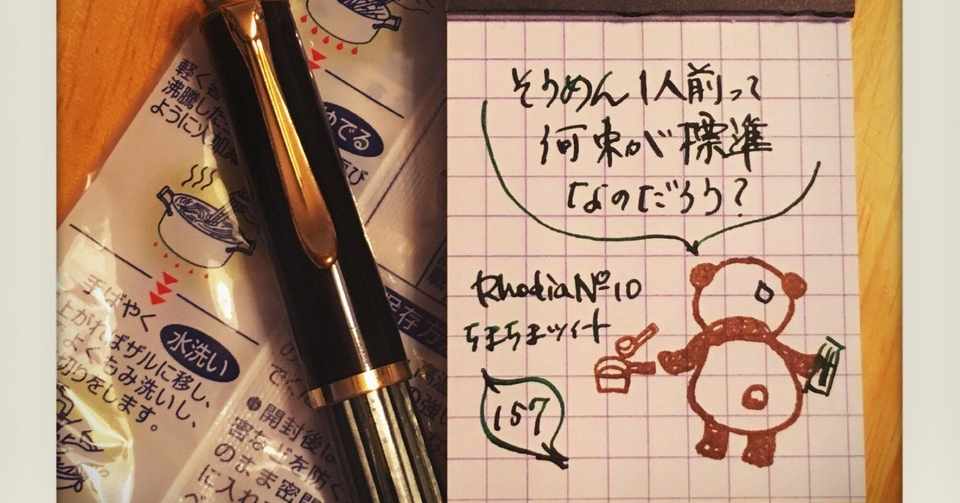 そうめん1人前って
何束が標準
なのだろう?
Rhodia Nº10
ちまちまツイート
157
軽く
沸騰した
ように火加
ゆでる
手ばやく
水洗い
上がればザルに移し、
よくもみ洗いし、
切りをします。
保存方
●開封後に
のまま密閉
に入れ